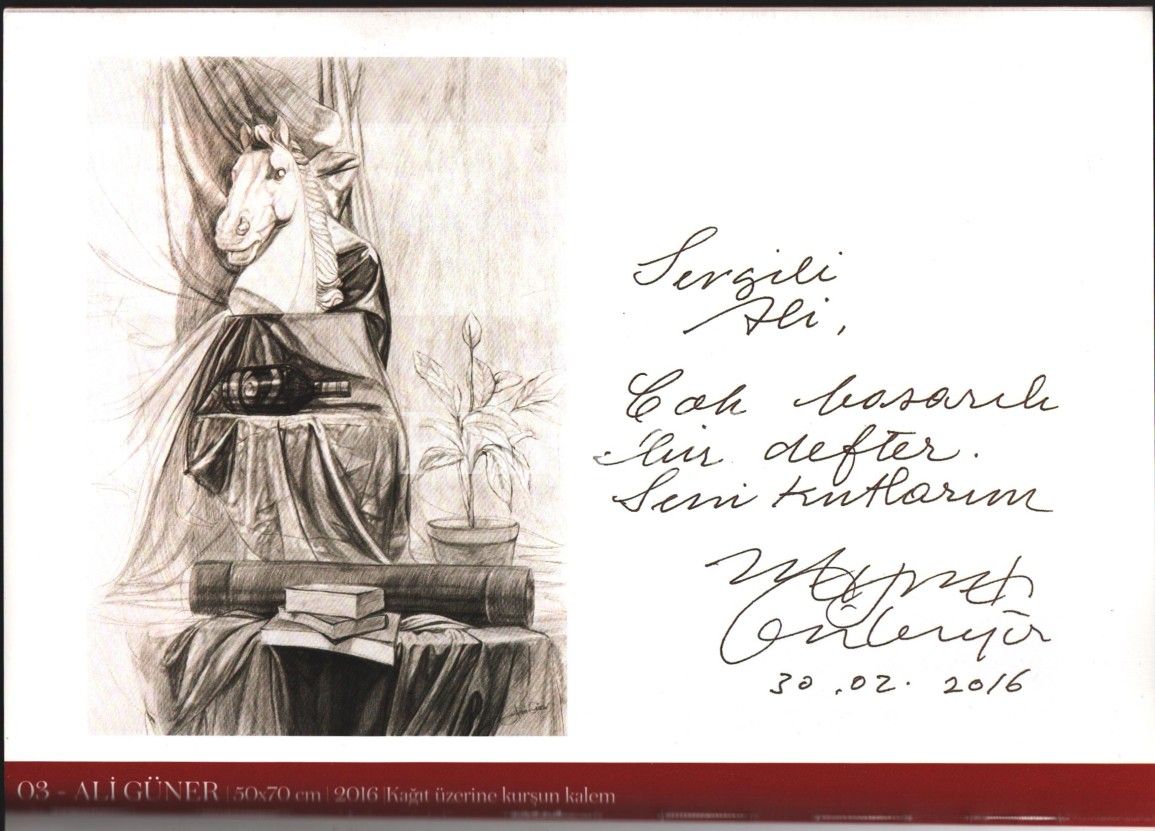 Sevgili
Ali,
Çok başarılı
bir defter.
Seni kutlarım
30.02.2016
03 - ALİ GÜNER | 50x70 cm | 2016 |Kağıt üzerine kurşun kalem